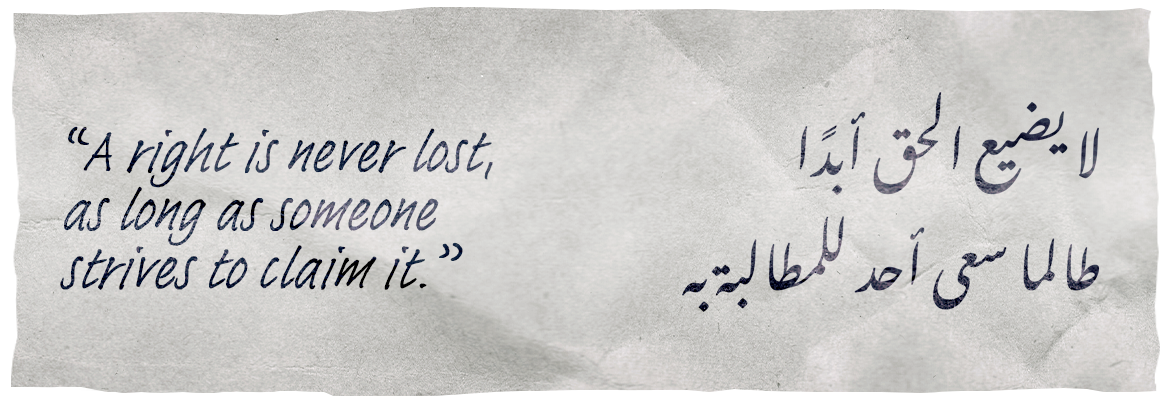 “A right is never lost,
as long as someone
strives to claim it.”
لا يضيع الحق أبدًا
طالما سعى أحد للمطالبة به